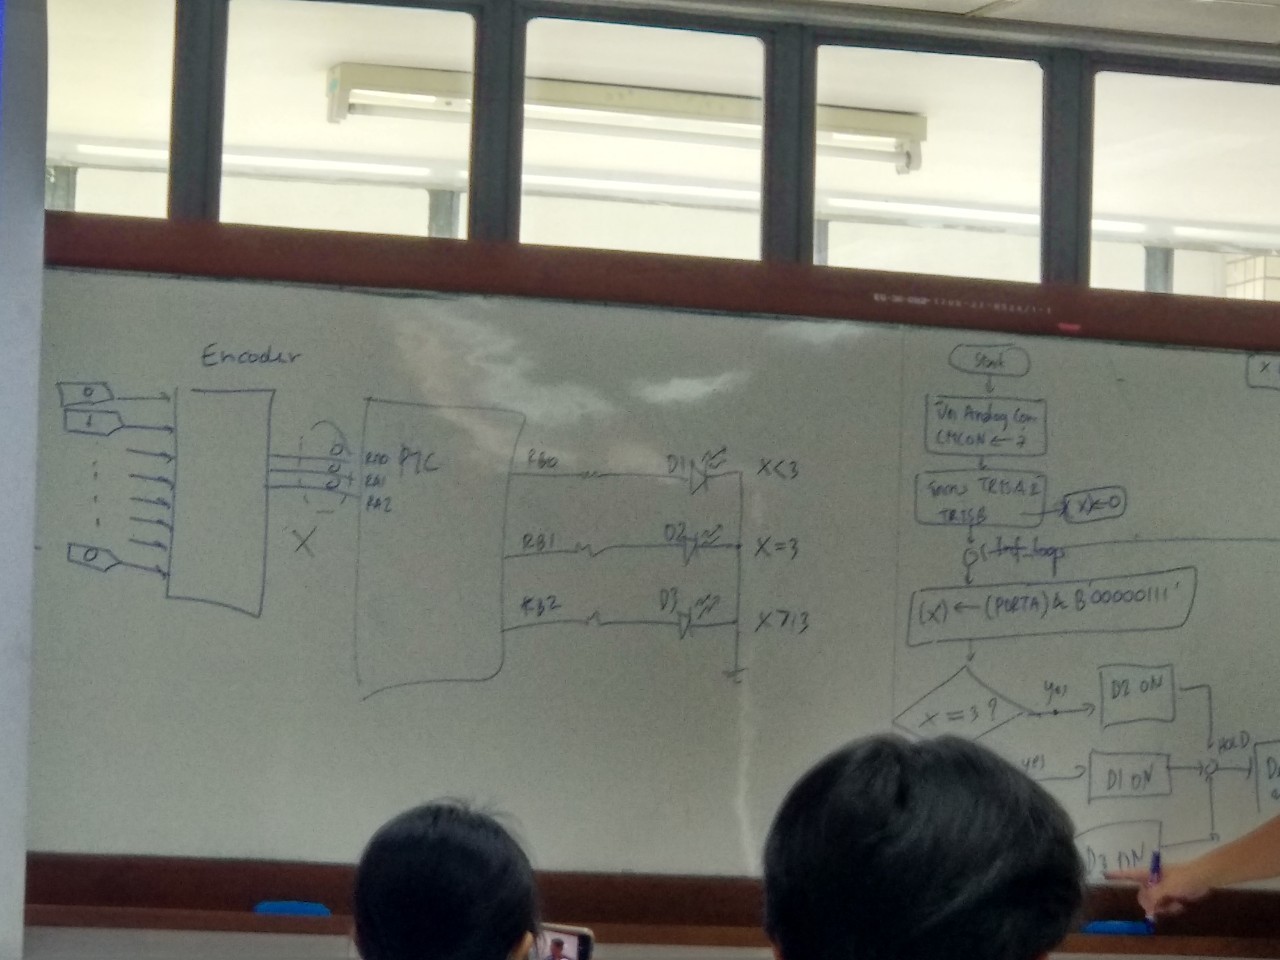 Encoder
0
1
0
X
RA0
RA1
RA2
PIC
RB0
D1
X<3
RB1
D2
X=3
RB2
D3
X>3
Start
Analog Com
CMCON ← 7
TRISA &
TRISB
(X)←0
inf_loop
(X) ← (PORTA) & B'00000111'
X = 3 ?
yes
D2 ON
yes
D1 ON
HOLD
D3 ON